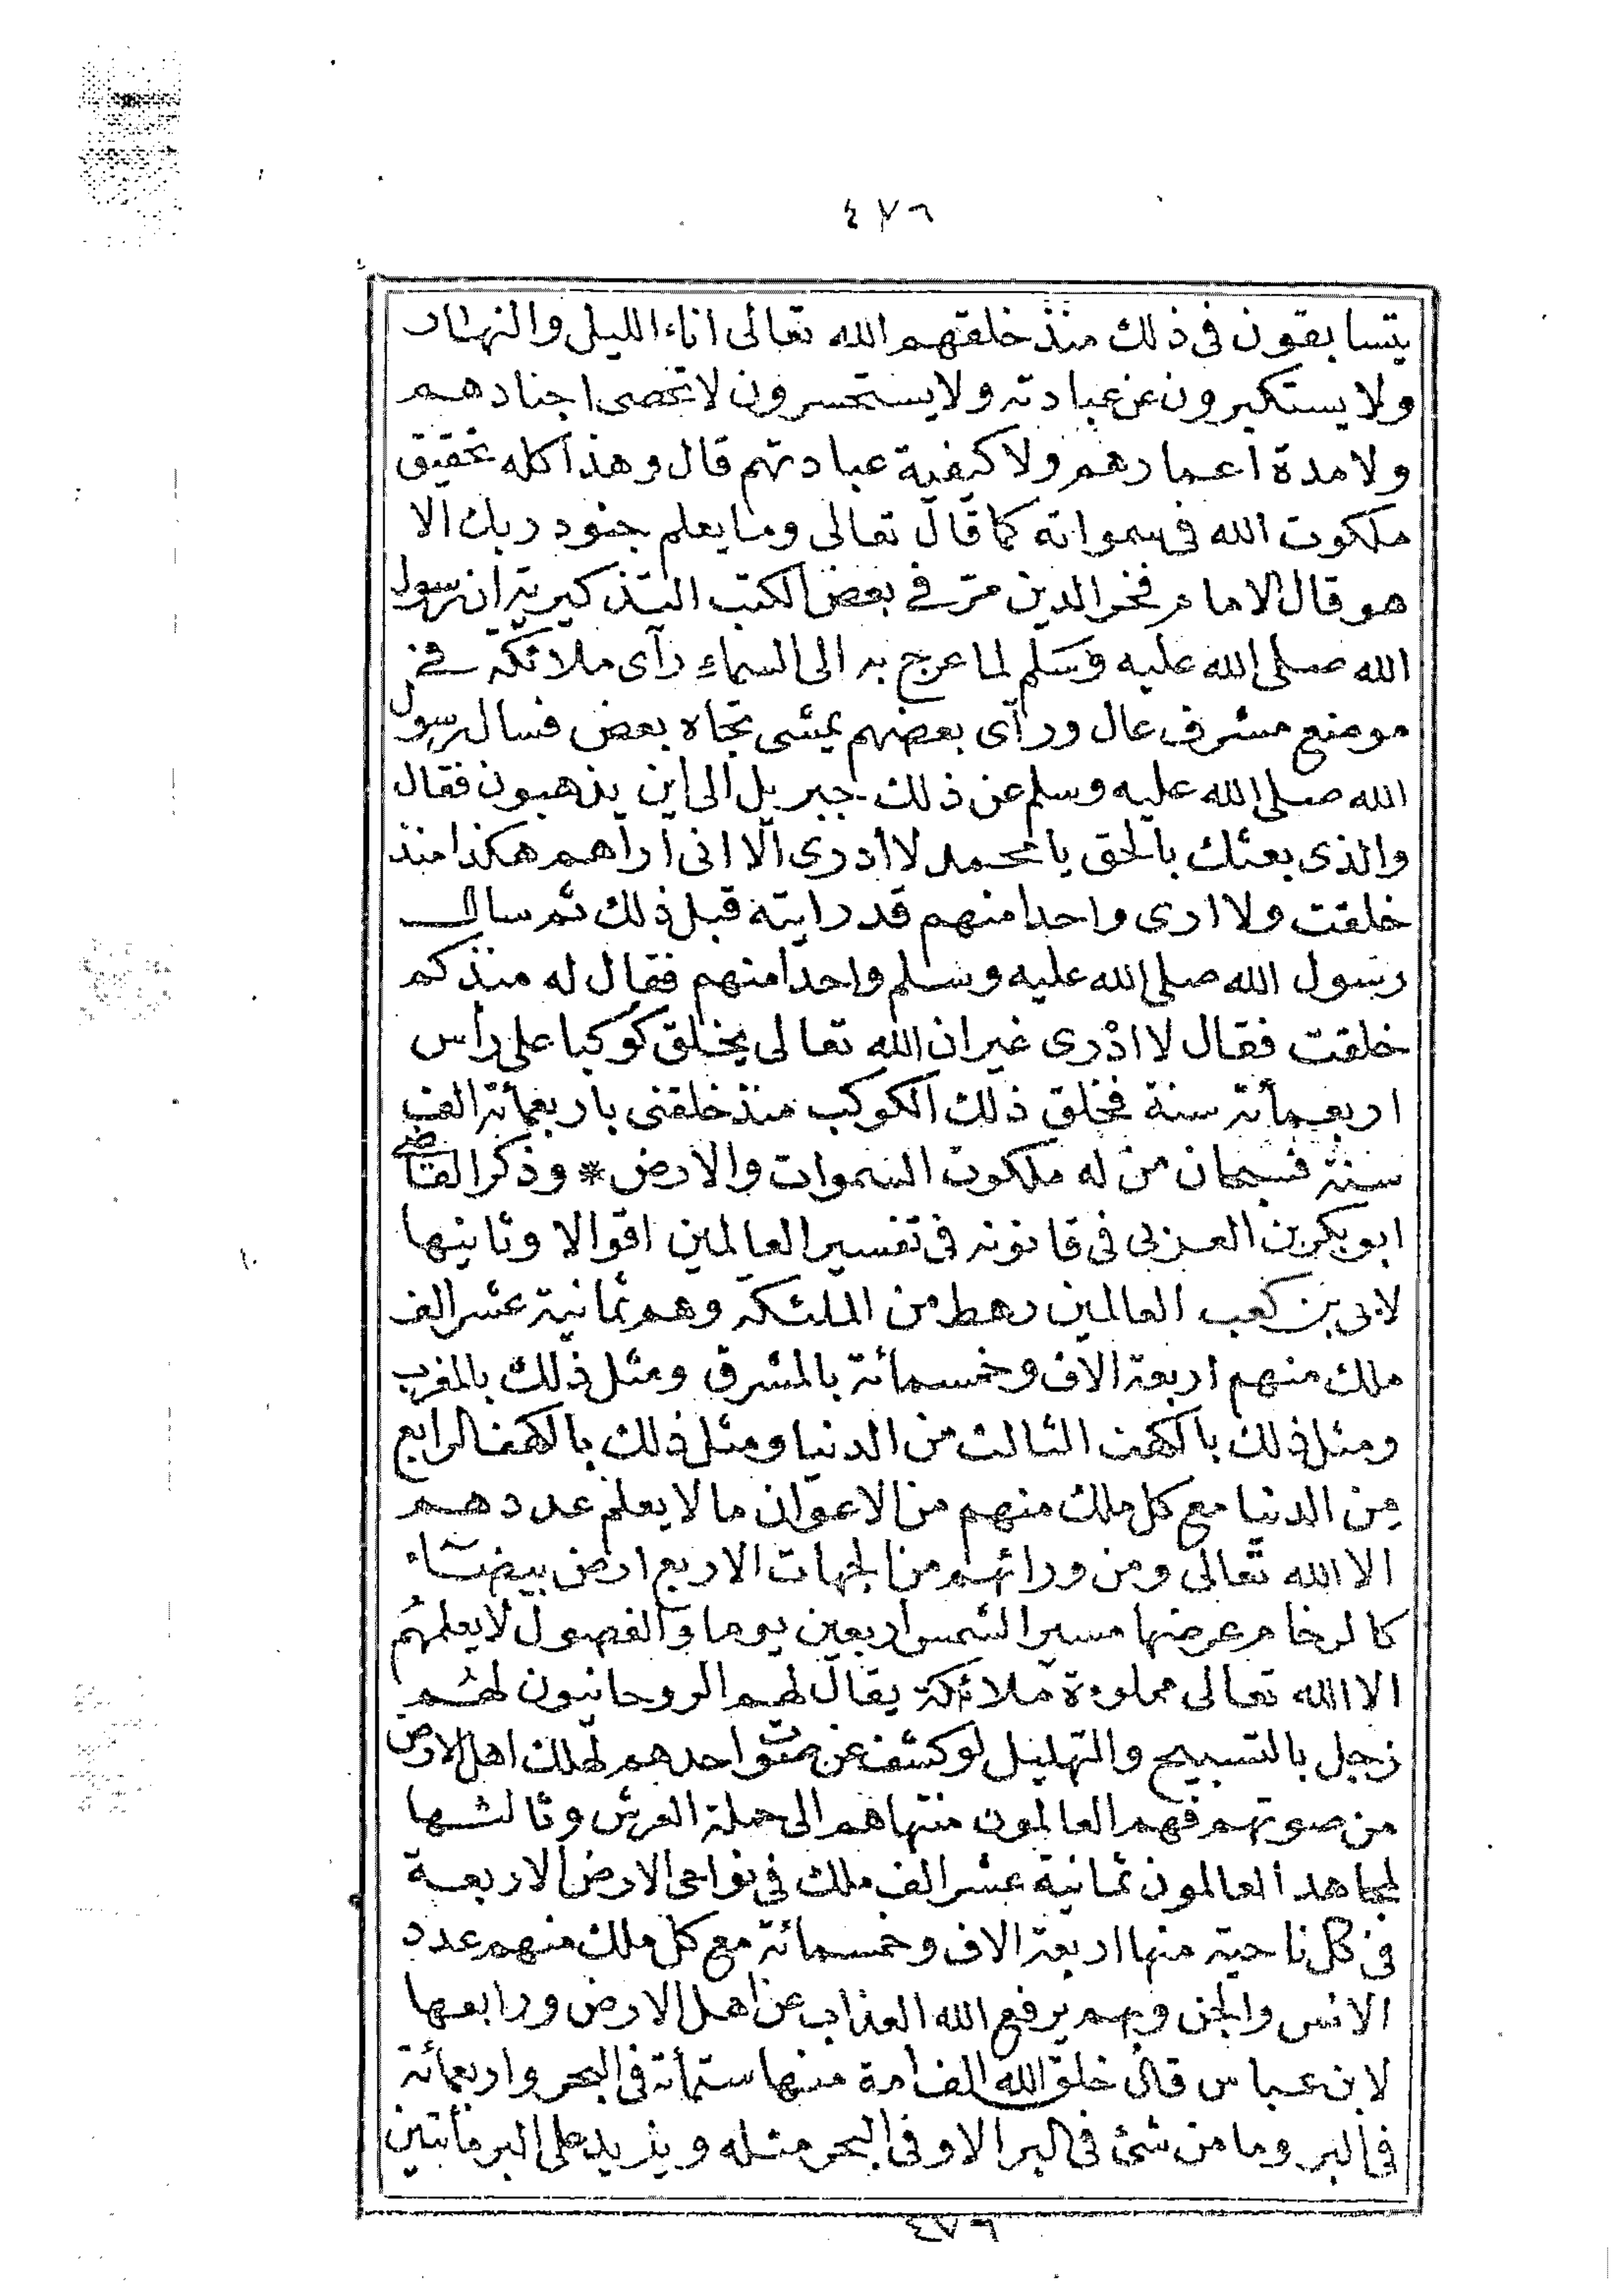 ٤٧٦
يتسابقون فى ذلك منذ خلقهم الله تعالى اناء الليل والنهار
ولا يستكبرون عن عبادته ولا يستحسرون لا تحصى اجنادهم
ولا مدة اعمارهم ولا كيفية عبادتهم قال وهذا كله تحقيق
ملكوت الله فى سمواته كما قال تعالى وما يعلم جنود ربك الا
هو قال الامام فخر الدين مر فى بعض الكتب التذكيرية ان رسول
الله صلى الله عليه وسلم لما عرج به الى السماء رآى ملائكة فى
موضع مشرف عال ورآى بعضهم يمشى تجاه بعض فسال رسول
الله صلى الله عليه وسلم عن ذلك جبريل الى اين يذهبون فقال
والذى بعثك بالحق يا محمد لا أدرى الا انى اراهم هكذا منذ
خلقت ولا ارى واحدا منهم قد رايته قبل ذلك ثم سال
رسول الله صلى الله عليه وسلم واحدا منهم فقال له منذ كم
خلقت فقال لا ادرى غير ان الله تعالى يخلق كوكبا على رأس
اربعمأته سنة فخلق ذلك الكوكب منذ خلقنى باربعمأته الف
سنة فسبحان من له ملكوت السموات والارض * وذكر القاضى
ابو بكر بن العربى فى قانونه فى تفسير العالمين اقوالا وثانيها
لابى بن كعب العالمين رهط من الملئكة وهم ثمانية عشر الف
ملك منهم اربعة الاف وخمسمائة بالمشرق ومثل ذلك بالمغرب
ومثل ذلك بالكهف الثالث من الدنيا ومثل ذلك بالكهف الرابع
من الدنيا مع كل ملك منهم من الاعوان ما لا يعلم عددهم
الا الله تعالى ومن ورائهم من الجهات الاربع ارض بيضاء
كالرخام عرضها مسير الشمس اربعين يوما والفصول لا يعلمهم
الا الله تعالى مملوءة ملائكة يقال لهم الروحانيون لهم
زجل بالتسبيح والتهليل لو كشف عن صوت واحدهم لهلك اهل الارض
من صوتهم فهم العالمون منتهاهم الى حملة العرش وثالثها
لمجاهد العالمون ثمانية عشر الف ملك فى نواحى الارض الاربعة
فى كل ناحية منها اربعة الاف وخمسمائة مع كل ملك منهم عدد
الانس والجن وبهم يرفع الله العذاب عن اهل الارض ورابعها
لابن عباس قال خلق الله الف امة منها ستمأته فى البحر واربعمائة
فى البر وما من شئ فى البر الا وفى البحر مثله ويزيد على البر مأتين
٤٧٦